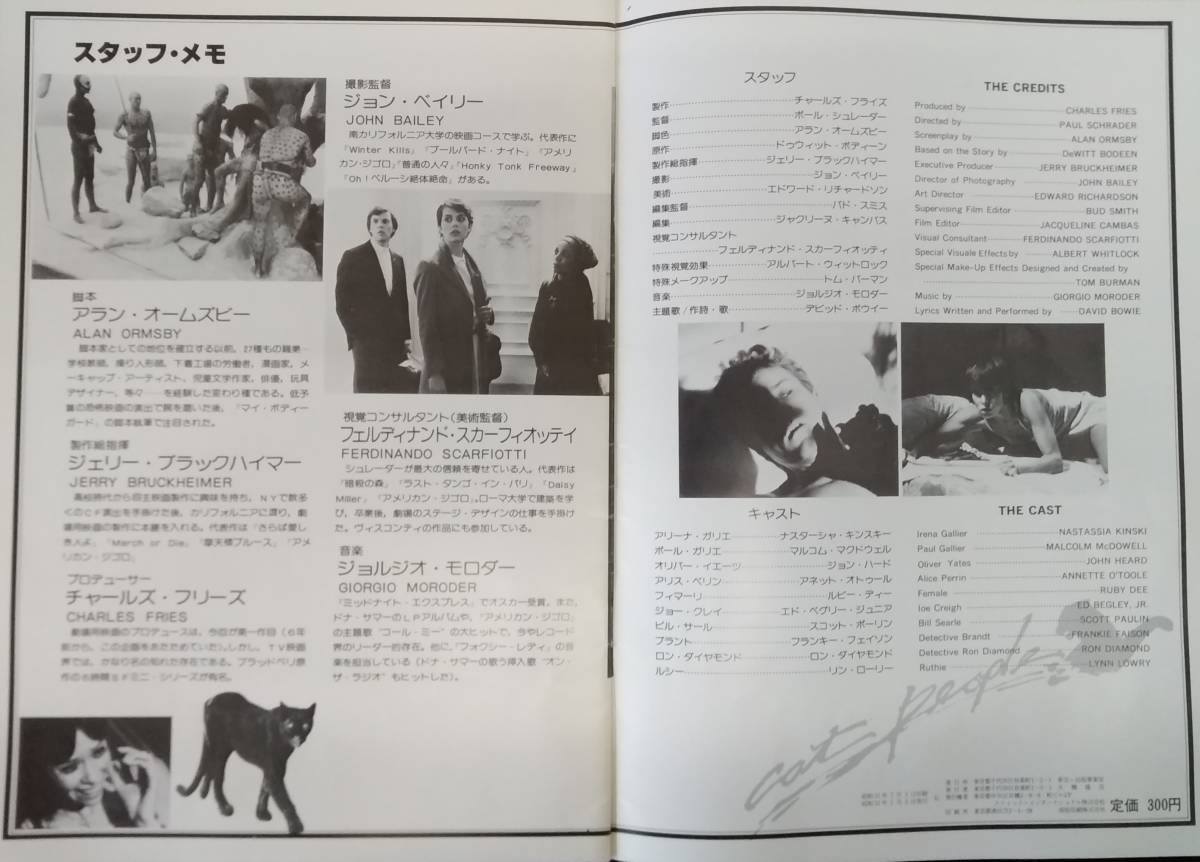 スタッフ・メモ
脚本
アラン・オームズビー
ALAN ORMSBY
脚本家としての地位を確立する以前、27種もの職業…
学校教師、操り人形師、下着工場の労働者、漫画家、メ
ーキャップ・アーティスト、児童文学作家、俳優、玩具
デザイナー、等々……を経験した変わり種である。低予
算の恐怖映画の演出で腕を磨いた後、「マイ・ボディー
ガード」の脚本執筆で注目された。
製作総指揮
ジェリー・ブラックハイマー
JERRY BRUCKHEIMER
高校時代から自主映画製作に興味を持ち、NYで数多
くのCF演出を手掛けた後、カリフォルニアに渡り、劇
場用映画の製作に本腰を入れる。代表作は「さらば愛し
き人よ」「March or Die」「摩天楼ブルース」「アメ
リカン・ジゴロ」
プロデューサー
チャールズ・フリーズ
CHARLES FRIES
劇場用映画のプロデュースは、今回が第一作目(6年
前から、この企画をあたためていた)。しかし、TV映画
界では、かなり名の知れた存在である。ブラッドベリ原
作の6時間SFミニ・シリーズが有名。
撮影監督
ジョン・ベイリー
JOHN BAILEY
南カリフォルニア大学の映画コースで学ぶ。代表作に
「Winter Kills」「ブールバード・ナイト」「アメリ
カン・ジゴロ」「普通の人々」「Honky Tonk Freeway」
「Oh!ベルーシ絶体絶命」がある。
視覚コンサルタント(美術監督)
フェルディナンド・スカーフィオッテイ
FERDINANDO SCARFIOTTI
シュレーダーが最大の信頼を寄せている人。代表作は
「暗殺の森」「ラスト・タンゴ・イン・パリ」「Daisy
Miller」「アメリカン・ジゴロ」。ローマ大学で建築を学
び、卒業後、劇場のステージ・デザインの仕事を手掛け
た。ヴィスコンティの作品にも参加している。
音楽
ジョルジオ・モロダー
GIORGIO MORODER
「ミッドナイト・エクスプレス」でオスカー受賞。また、
ドナ・サマーのLPアルバムや、「アメリカン・ジゴロ」
の主題歌"コール・ミー"の大ヒットで、今やレコード
界のリーダー的存在。他に、「フォクシー・レディ」の音
楽を担当している(ドナ・サマーの歌う挿入歌"オン・
ザ・ラジオ"もヒットした)。
スタッフ
製作……チャールズ・フライズ
監督……ポール・シュレーダー
脚色……アラン・オームズビー
原作……ドゥウィット・ボディーン
製作総指揮……ジェリー・ブラックハイマー
撮影……ジョン・ベイリー
美術……エドワード・リチャードソン
編集監督……バド・スミス
編集……ジャクリーヌ・キャンバス
視覚コンサルタント
……フェルディナンド・スカーフィオッティ
特殊視覚効果……アルバート・ウィットロック
特殊メークアップ……トム・バーマン
音楽……ジョルジオ・モロダー
主題歌/作詩・歌……デビッド・ボウイー
THE CREDITS
Produced by……CHARLES FRIES
Directed by……PAUL SCHRADER
Screenplay by……ALAN ORMSBY
Based on the Story by……DeWITT BODEEN
Executive Producer……JERRY BRUCKHEIMER
Director of Photography……JOHN BAILEY
Art Director……EDWARD RICHARDSON
Supervising Film Editor……BUD SMITH
Film Editor……JACQUELINE CAMBAS
Visual Consultant……FERDINANDO SCARFIOTTI
Special Visuale Effects by……ALBERT WHITLOCK
Special Make-Up Effects Designed and Created by
……TOM BURMAN
Music by……GIORGIO MORODER
Lyrics Written and Performed by……DAVID BOWIE
キャスト
アリーナ・ガリエ……ナスターシャ・キンスキー
ポール・ガリエ……マルコム・マクドウェル
オリバー・イエーツ……ジョン・ハード
アリス・ペリン……アネット・オトゥール
フィマーリ……ルビー・ディー
ジョー・クレイ……エド・ベグリー・ジュニア
ビル・サール……スコット・ポーリン
ブラント……フランキー・フェイソン
ロン・ダイヤモンド……ロン・ダイヤモンド
ルシー……リン・ローリー
THE CAST
Irena Gallier……NASTASSIA KINSKI
Paul Gallier……MALCOLM McDOWELL
Oliver Yates……JOHN HEARD
Alice Perrin……ANNETTE O'TOOLE
Female……RUBY DEE
Ioe Creigh……ED BEGLEY, JR.
Bill Searle……SCOTT PAULIN
Detective Brandt……FRANKIE FAISON
Detective Ron Diamond……RON DIAMOND
Ruthie……LYNN LOWRY
cat people
定価 300円